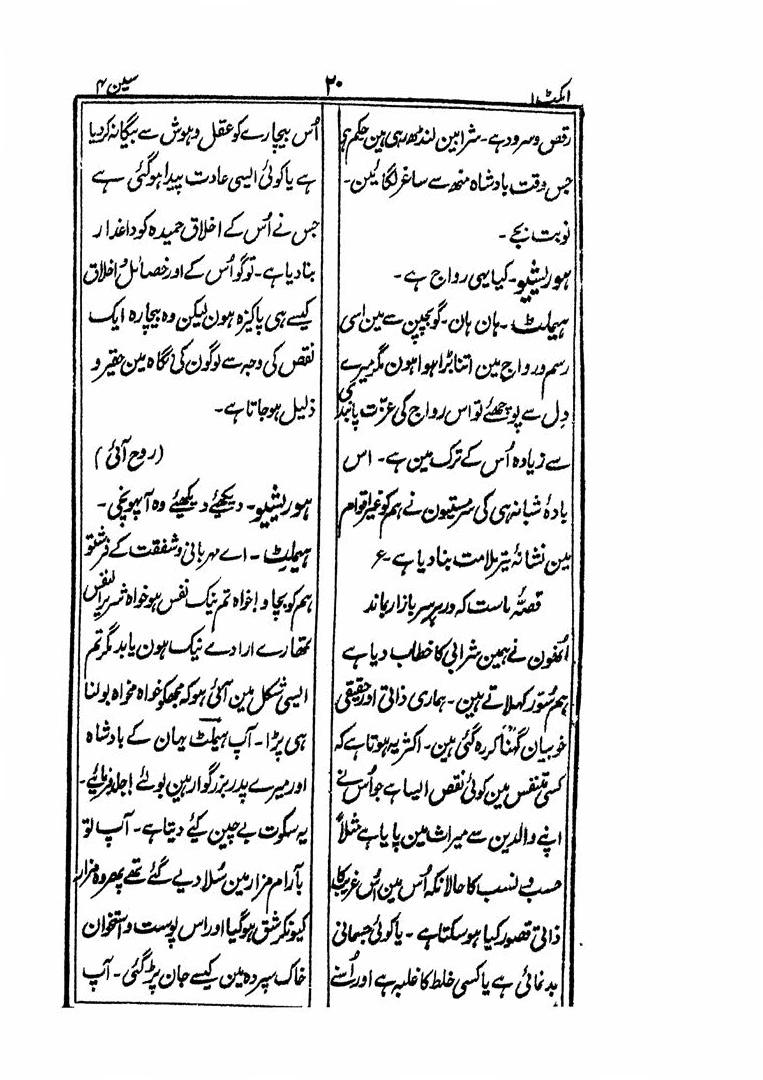 ایکٹ ۱
۲۰
سین ۴
رقص و سرود ہے۔ شرابین لنڈھ رہی ہین حکم ہی
جس وقت بادشاہ منھ سے ساغر لگائین۔
نوبت بجے۔
ہوریشیو۔ کیا یہی رواج ہے۔
ہیملٹ۔ ہان ہان۔ گو بچپن سے مین اسی
رسم و رواج مین اتنا بڑا ہوا ہون مگر میرے
دل سے پوچھئے تو اس رواج کی عزّت پابندی
سے زیادہ اُس کے ترک مین ہے۔ اس
بادۂ شبانہ ہی کی سرمستیون نے ہم کو غیر اقوام
مین نشانۂ تیر ملامت بنا دیا ہے۔ ع
قصّۂ ماست کہ در ہر سر بازار ماند
اُنھون نے ہمین شرابی کا خطاب دیا ہے
ہم سُوَر کہلاتے ہین۔ ہماری ذاتی اور حقیقی
خوبیان گہنا کر رہ گئی ہین۔ اکثر یہ ہوتا ہے کہ
کسی متنفس مین کوئی نقص ایسا ہے جو اُس نے
اپنے والدین سے میراث مین پایا ہے مثلاً
حسب نسب کا حالانکہ اُس مین اُس غریب کا
ذاتی قصور کیا ہو سکتا ہے۔ یا کوئی جسمانی
بدنمائی ہے یا کسی خلط کا غلبہ ہے اور اُسنے
اُس بیچارے کو عقل و ہوش سے بیگانہ کر دیا
ہے یا کوئی ایسی عادت پیدا ہو گئی ہے
جس نے اُس کے اخلاق حمیدہ کو داغدار
بنا دیا ہے۔ تو گو اُس کے اور خصائل و اخلاق
کیسے ہی پاکیزہ ہون لیکن وہ بیچارہ ایک
نقص کی وجہ سے لوگون کی نگاہ مین حقیر و
ذلیل ہو جاتا ہے۔
(روح آئی)
ہوریشیو۔ دیکھئے دیکھئے وہ آ پہونچی۔
ہیملٹ۔ اے مہربانی و شفقت کے فرشتو
ہم کو بچاؤ! خواہ تم نیک نفس ہو خواہ شریر النفس
تمھارے ارادے نیک ہون یا بد مگر تم
ایسی شکل مین آئی ہو کہ مجھکو خواہ مخواہ بولنا
ہی پڑا۔ آپ ہیملٹ یہان کے بادشاہ
اور میرے پدر بزرگوار ہین بولئے! جلد فرمائیے۔
یہ سکوت بے چین کیے دیتا ہے۔ آپ تو
بآرام مزار مین سُلا دیے گئے تھے پھر وہ مزار
کیونکر شق ہو گیا اور اس پوست و استخوان
خاک سپردہ مین کیسے جان پڑ گئی۔ آپ